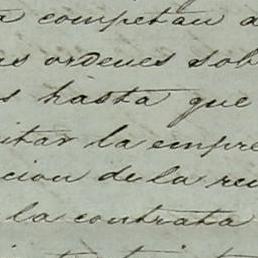 a competan a
as ordenes sob
s hasta que
itar la empre
cion de la re
la contrata